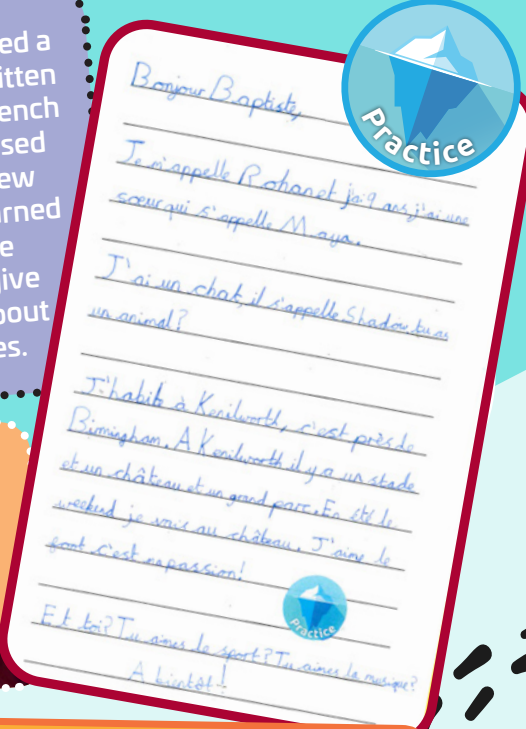 ed a
itten
ench
sed
ew
rned
e
ive
bout
es.
Practice
Bonjour Baptiste,
Je m'appelle Rohan et jai 9 ans, j'ai une
soeur qui s'appelle Maya.
J'ai un chat, il s'appelle Shadow, tu as
un animal?
J'habite à Kenilworth, c'est près de
Birmingham. A Kenilworth il y a un stade
et un château et un grand parc. En été le
weekend je vais au château. J'aime le
foot c'est passion!
Practice
Et toi? Tu aimes le sport? Tu aimes la musique?
A bientôt!